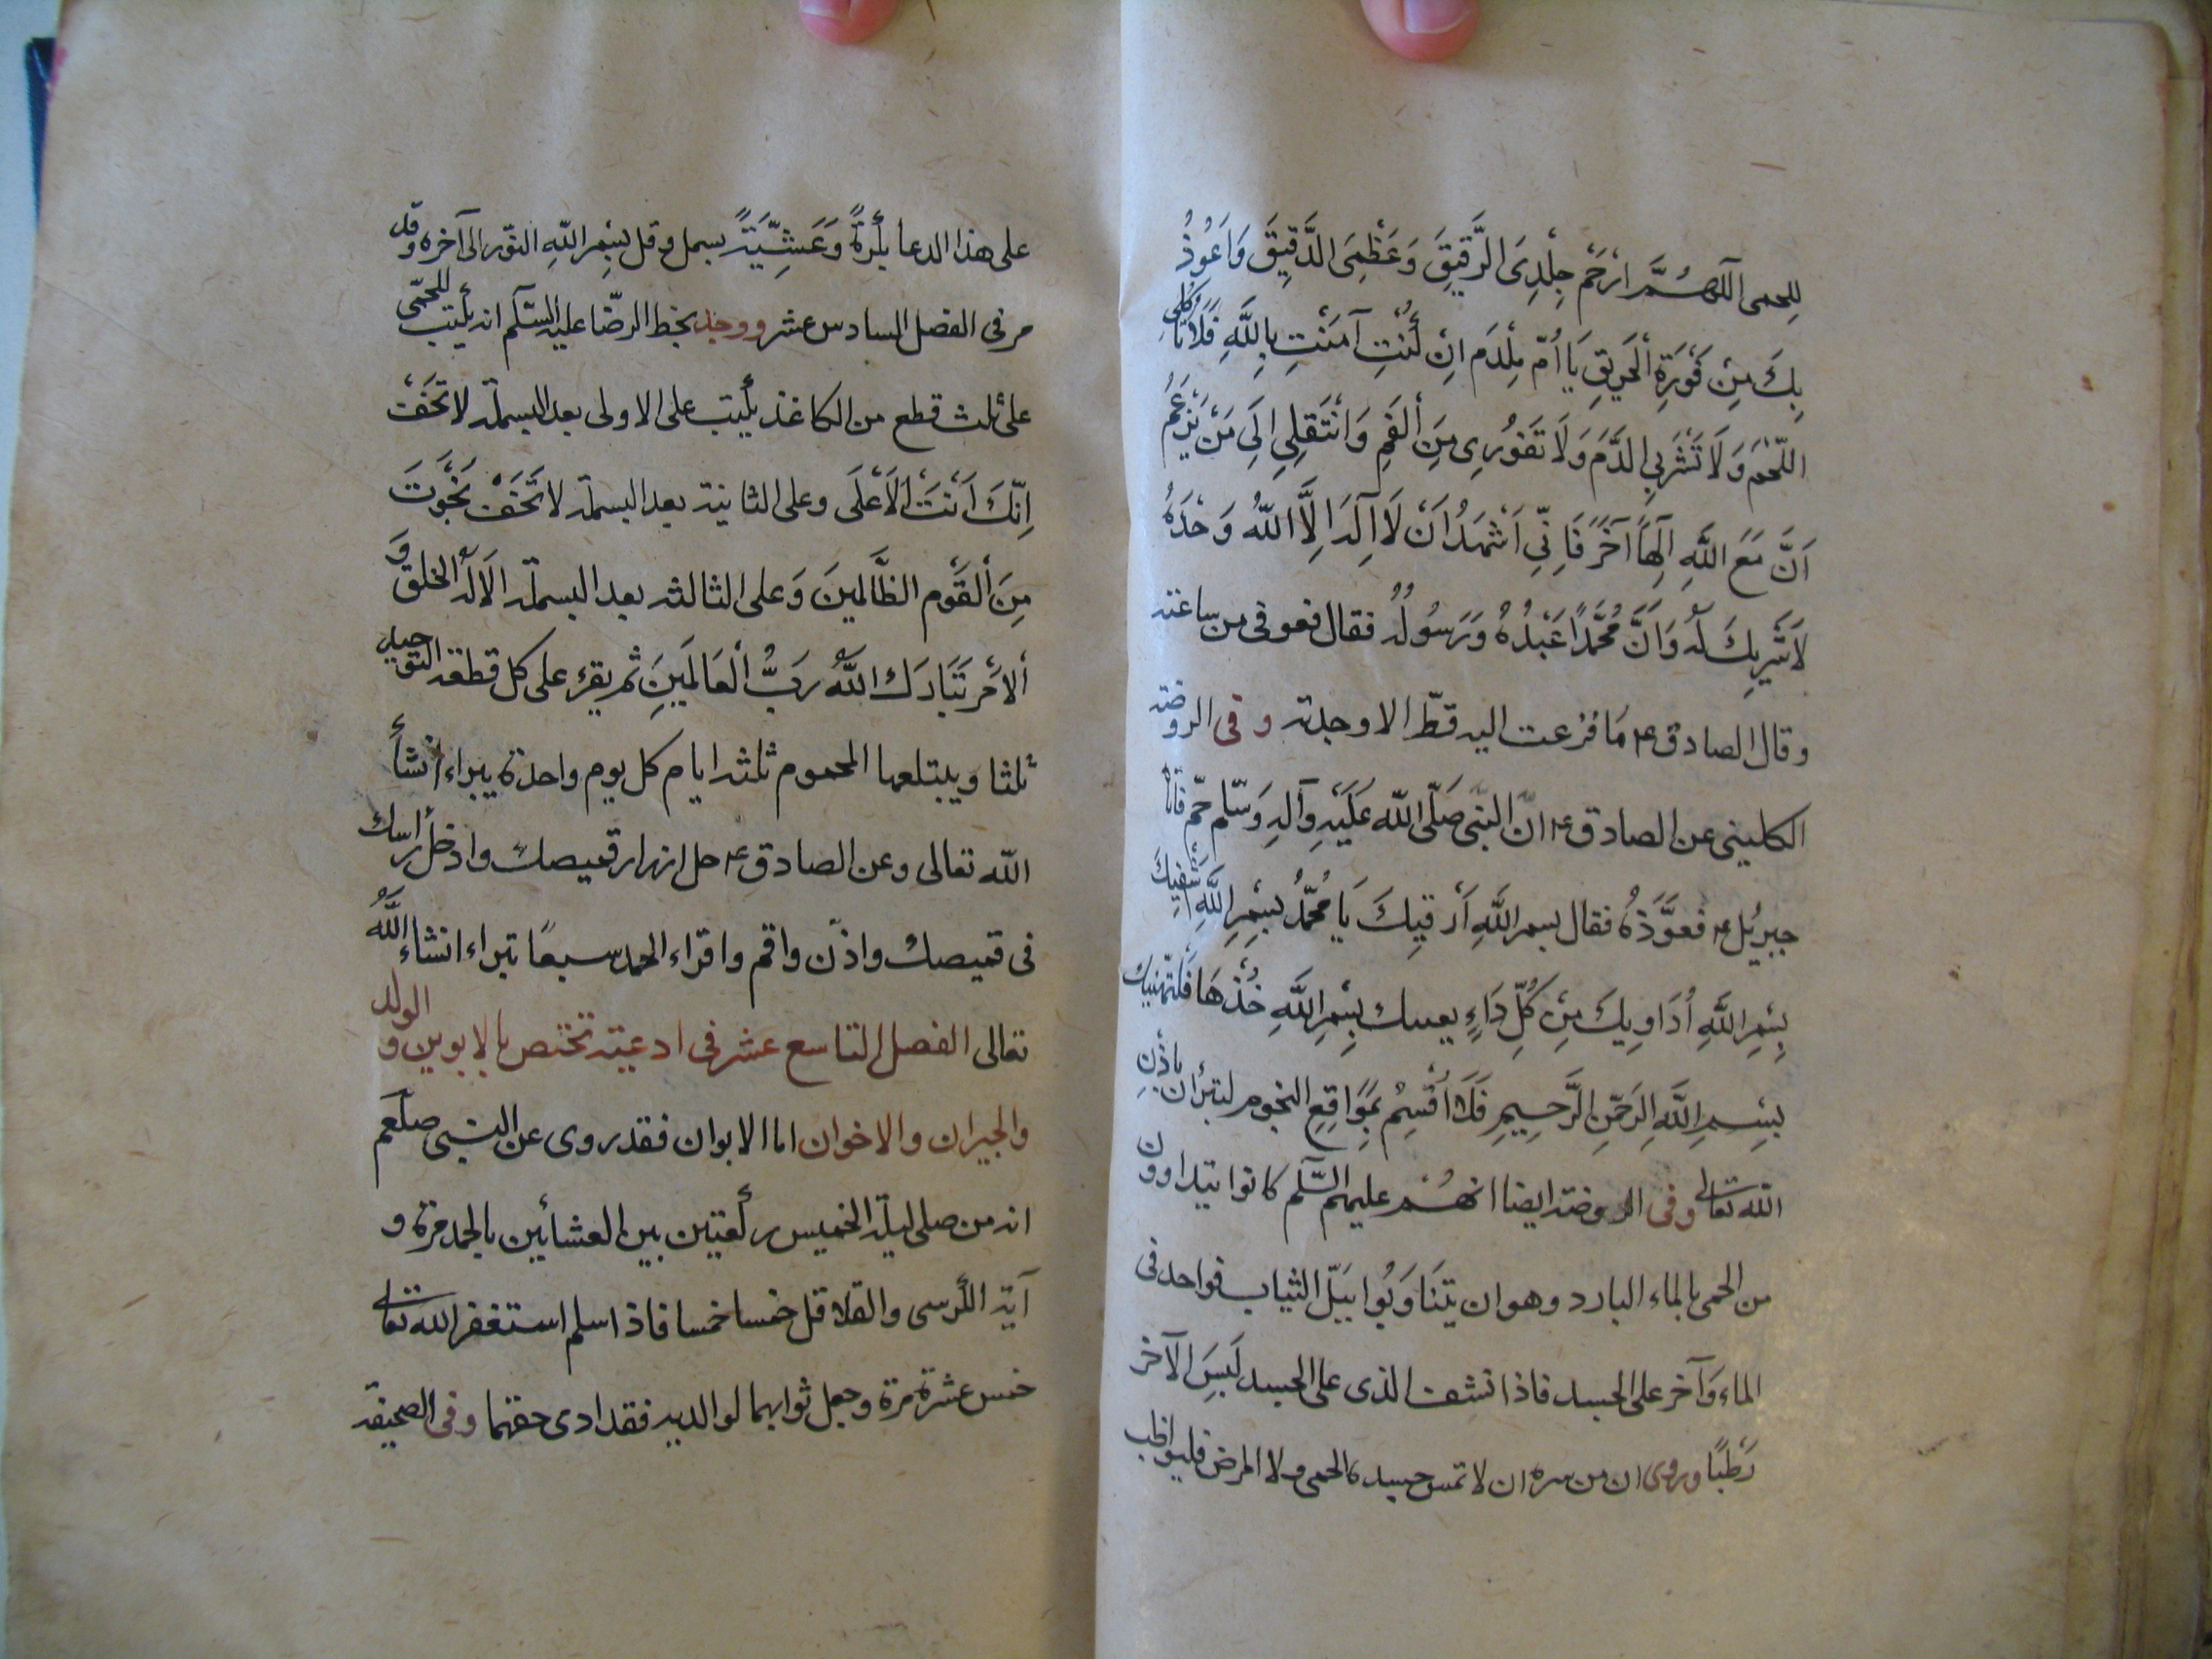 للحمى اَللّهُمَّ ارْحَمْ جِلْدِىَ الرَّقيقَ وَعَظْمِىَ الدَّقيقَ وَاَعُوذُ
بِكَ مِنْ فَوْرَةِ الْحَريقِ يَا اُمّ مِلْدَم اِنْ كُنْتِ آمَنْتِ بِاللَّهِ فَلاَ تَأكُلِى
اللَّحْمَ وَلاَ تَشْرَبِى الدَّمَ وَلاَ تَفُورِى مِنَ الْفَمِ وَانْتَقِلِى اِلَى مَنْ يَزْعَمُ
اَنَّ مَعَ اللَّهِ اِلَهاً آخَرَ فَاِنّى اَشْهَدُ اَنْ لاَ اِلَهَ اِلَّا اللَّهُ وَحْدَهُ
لاَ شَريكَ لَهُ وَاَنَّ مُحَمَّداً عَبْدُهُ وَرَسُولُهُ فقال فعوفى من ساعته
وقال الصادق ع مَا فزعت اليه قطّ الا وجدته وفى الروضه
الكلينى عن الصادق ع انّ النبّى صَلّى اللّه عَلَيْهِ وآلهِ وَسّلم حمّ فاتا
جبرئيل ع فعوَّذَهُ فقال بسم اللَّهِ اَرقيكَ يَا مُحَمّدُ بِسْمِ اللَّهِ اشْفيكَ
بِسْمِ اللَّهِ اُدَاويكَ مِنْ كُلّ دَاءٍ يعييك بِسْمِ اللَّهِ خُذْهَا فَلتَهْنيك
بِسْمِ اللَّهِ الرَحْمنِ الرَّحيمِ فَلاَ اُقْسِمُ بِمَوَاقِعِ النجوم لتبرأن باذْنِ
اللّه تعالى وفى الروضه ايضا انهُمْ عليهم السّلم كانوا يتداوون
من الحمى بالماء البارد وهو ان يتنَاوَبُوا بَبَلّ الثياب فواحد فى
الماء وَآخر على الجسد فاذا انشف الذى على الجسد لَبسَ الآخر
رَطْبًا وروى ان من سره ان لا تمس جسده الحمى ولا المرض فليواظب
على هذا الدعا بُكْرةً وَعَشِيَّةً بسمل وقل بِسْمِ اللَّهِ النوّر الى آخره وقد
مر فى الفصل السادس عشر ووجد بخط الرضّا عليه السّلم انه يكتب للحمّى
على ثلث قطع من الكاغذ يكتب على الاولى بعد البسملة لا تَخَفْ
اِنّكَ اَنْتَ الاَعْلَى وعلى الثانية بعد البسملة لا تَخَفْ نَجَوْتَ
مِنَ الْقَوْم الظَّالمينَ وَعلى الثالثه بعد البسملة اَلاَ لَهُ الخلق وَ
الاَمْر تَبَارَكَ اللَّهُ رَبُّ الْعَالَمينَ ثم يقرء على كل قطعة التوحيد
ثلثا ويبتلعها المحموم ثلثة ايام كل يوم واحدة يبراء انشأ
اللّه تعالى وعن الصادق ع حل ازرار قميصك وادخل رأسك
فى قميصك واذّن واقم واقراء الحمد سبعًا تبراء انشاء اللَّهُ
تعالى الفصل التاسع عشر فى ادعية تختص بالابوين والولد
والجيران والاخوان اما الابوان فقد روى عن النبى صلعم
انه من صلى ليلة الخميس ركعتين بين العشائين بالحمد مرة و
آية الكرسى والقلاقل خمسا خمسا فاذا سلم استغفر اللّه تعالى
خمس عشرة مرة وجعل ثوابهما لوالديه فقد ادى حقهما وفى الصحيفة